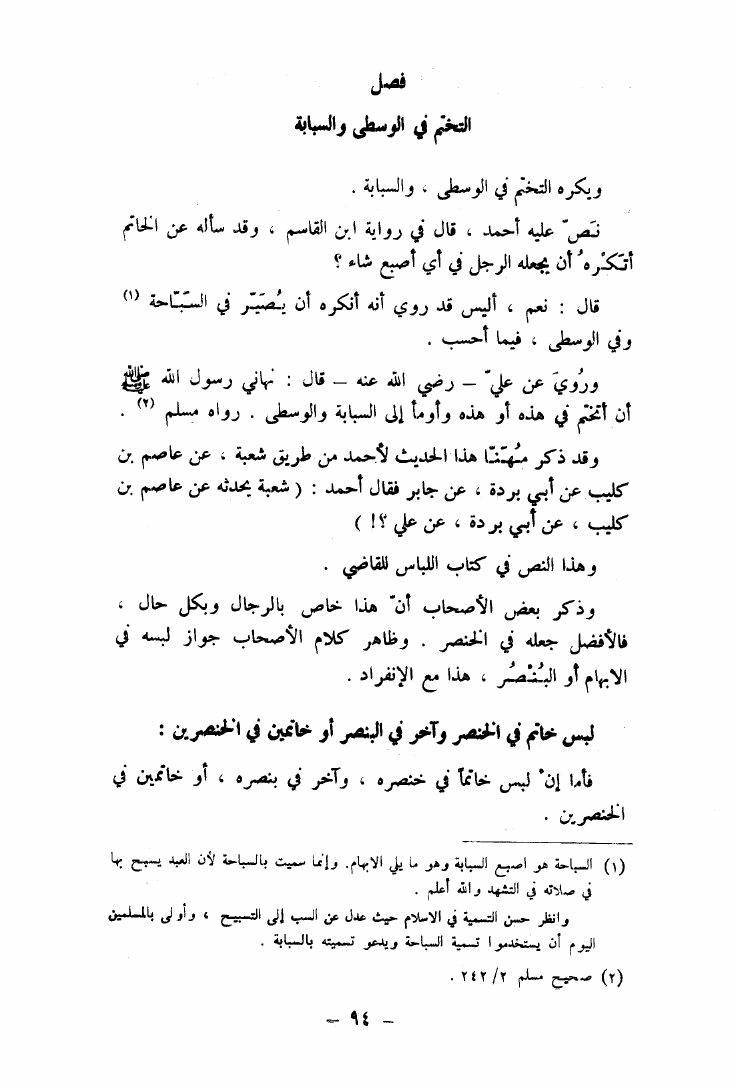 فصل
التختّم في الوسطى والسبابة
ويكره التختّم في الوسطى ، والسبابة .
نَصّ عليه أحمد ، قال في رواية ابن القاسم ، وقد سأله عن الخاتم
أتَكْرهُ أن يجعله الرجل في أي أصبع شاء ؟
قال : نعم ، أليس قد روي أنه أنكره أن يُصَيَّر في السَبّاحة (١)
وفي الوسطى ، فيما أحسب .
ورُويَ عن عليّ – رضي الله عنه – قال : نهاني رسول الله ﷺ
أن أتختّم في هذه أو هذه وأومأ إلى السبابة والوسطى . رواه مسلم (٢) .
وقد ذكر مُهَنّا هذا الحديث لأحمد من طريق شعبة ، عن عاصم بن
كليب عن أبي بردة ، عن جابر فقال أحمد : ( شعبة يحدثه عن عاصم بن
كليب ، عن أبي بردة ، عن علي ؟! )
وهذا النص في كتاب اللباس للقاضي .
وذكر بعض الأصحاب أنّ هذا خاص بالرجال وبكل حال ،
فالأفضل جعله في الخنصر . وظاهر كلام الأصحاب جواز لبسه في
الابهام أو البُنْصُر ، هذا مع الإنفراد .
لبس خاتم في الخنصر وآخر في البنصر أو خاتمين في الخنصرين :
فأما إنْ لبس خاتماً في خنصره ، وآخر في بنصره ، أو خاتمين في
الخنصرين .
(١) السباحة هو اصبع السبابة وهو ما يلي الابهام. وإنما سميت بالسباحة لأن العبد يسبح بها
في صلاته في التشهد والله أعلم .
وانظر حسن التسمية في الاسلام حيث عدل عن السب إلى التسبيح ، وأولى بالمسلمين
اليوم أن يستخدموا تسمية السباحة ويدعو تسميته بالسبابة .
(٢) صحيح مسلم ٢٤٢/٢ .
– ٩٤ –